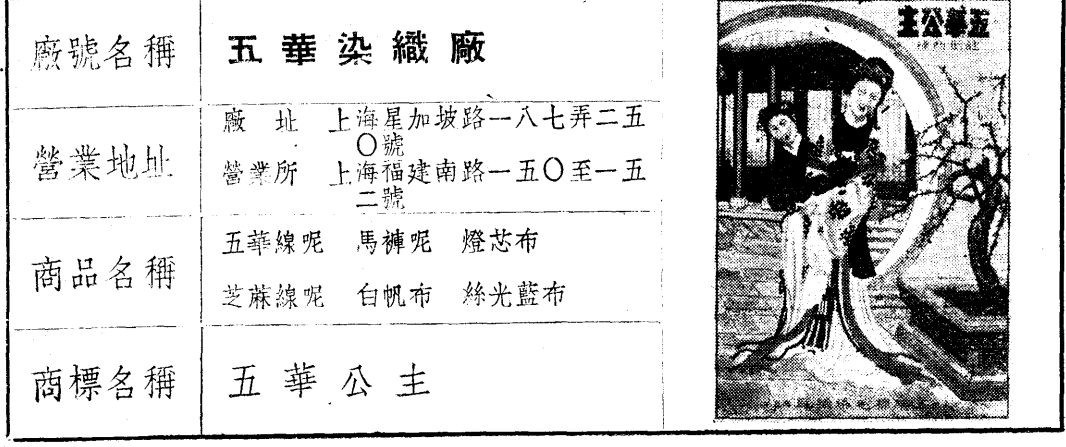 廠號名稱
五華染織廠
營業地址
廠址 上海星加坡路一八七弄二五
〇號
營業所 上海福建南路一五〇至一五
二號
商品名稱
五華線呢 馬褲呢 燈芯布
芝蔴線呢 白帆布 絲光藍布
商標名稱
五華公主
主公華五